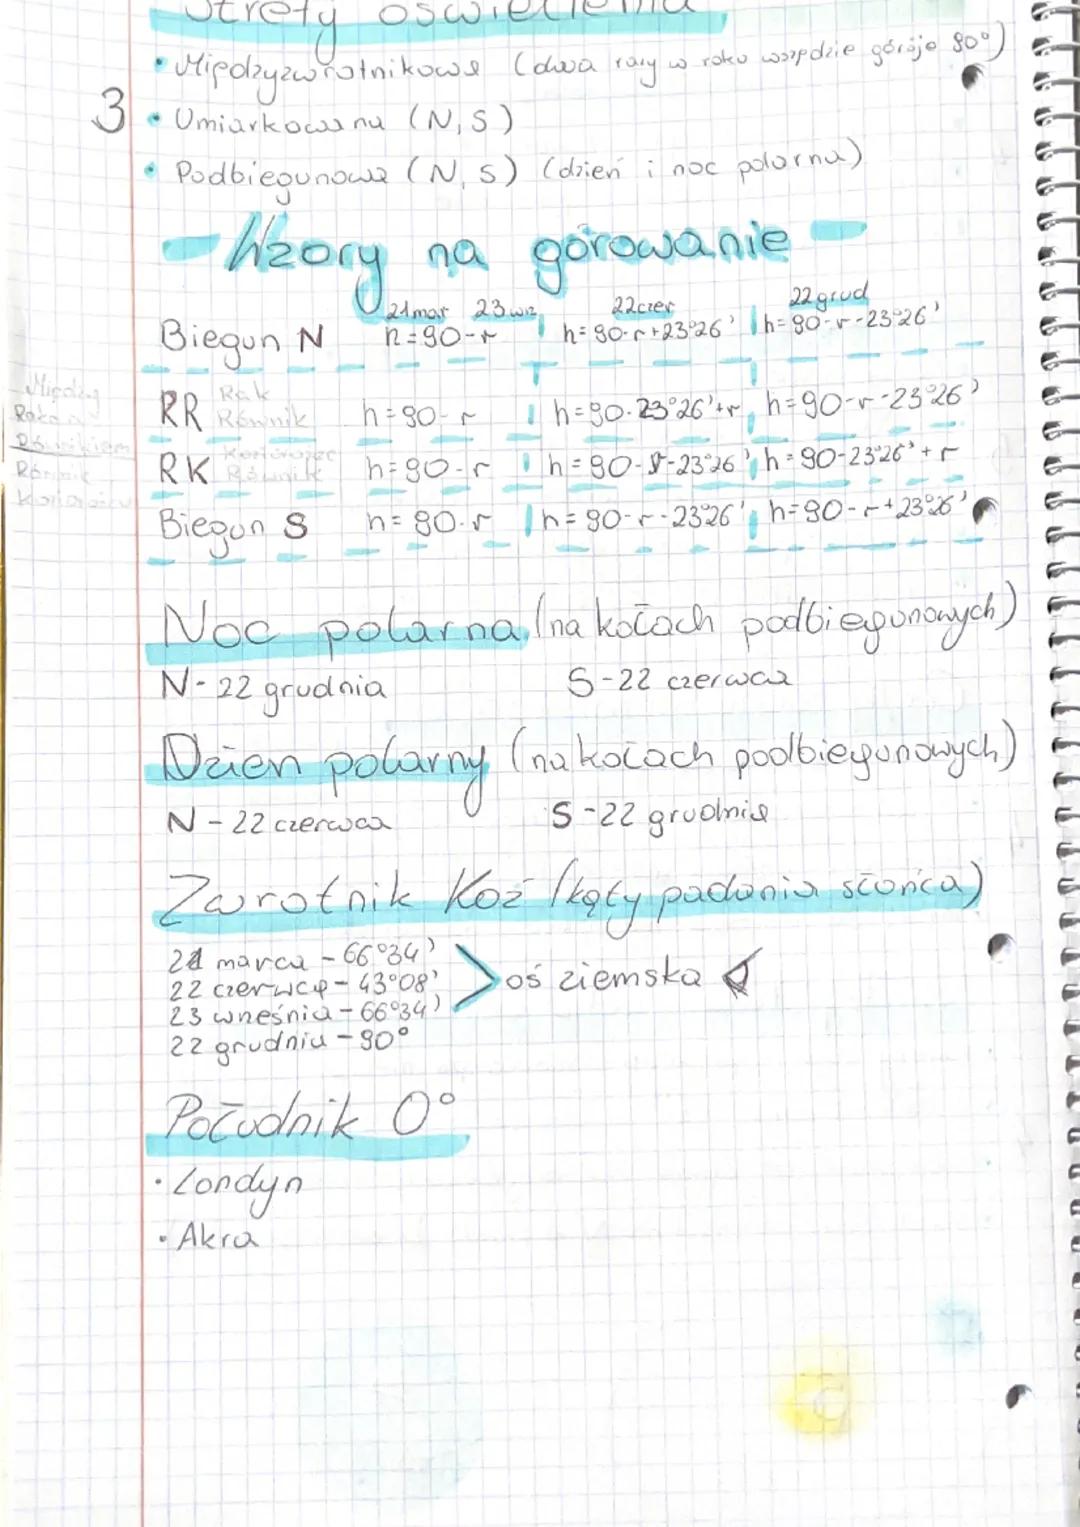 Strefy oświetlenia
• Międzyzwrotnikowe (dwa razy w roku wszędzie góruje 90°)
3 • Umiarkowana (N, S)
• Podbiegunowa (N, S) (dzień i noc polarna)
Wzory na górowanie
21 mar 23 wrz 22 czer 22 grud
Biegun N h=90-r h=90-r+23°26' h=90-r-23°26'
RR Rak Równik h=90-r h=90-23°26'+r h=90-r-23°26'
RK Koziorożec Równik h=90-r h=90-r-23°26' h=90-23°26'+r
Biegun S h=90-r h=90-r-23°26' h=90-r+23°26'
Między
Równikiem
Równik
Noc polarna (na kołach podbiegunowych)
N-22 grudnia S-22 czerwca
Dzień polarny (na kołach podbiegunowych)
N-22 czerwca S-22 grudnia
Zwrotnik Koź (kąty padania słońca)
21 marca - 66°34'
22 czerwca - 43°08' > oś ziemska
23 wneśnia - 66°34'
22 grudnia - 90°
Południk 0°
• Londyn
• Akra